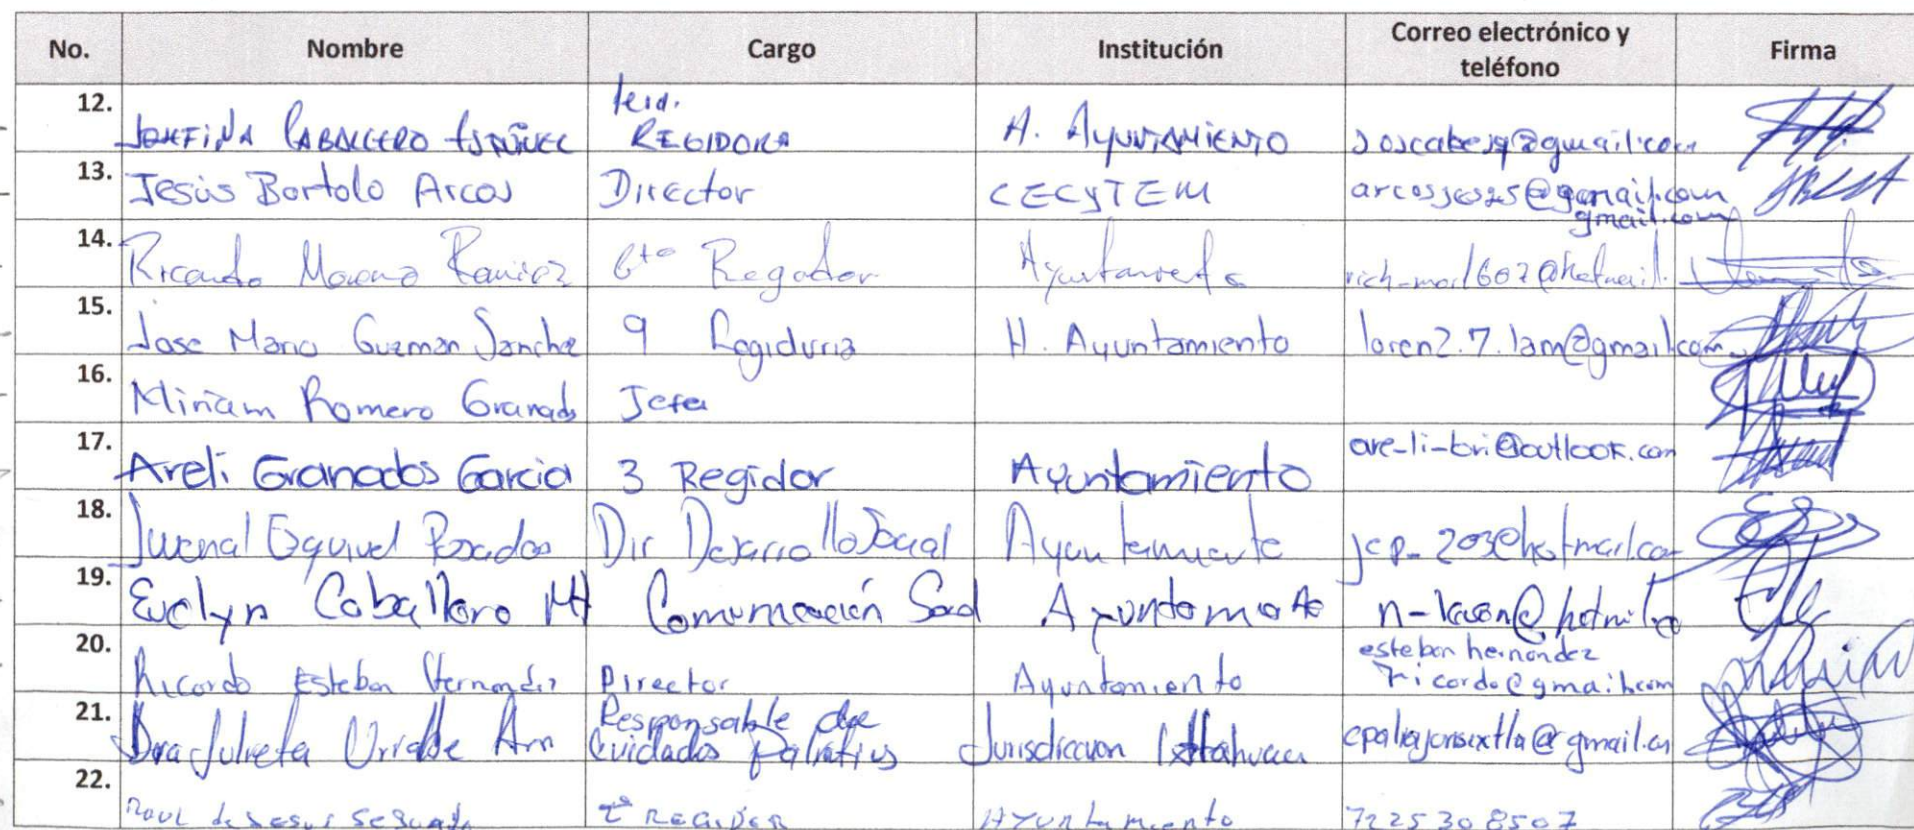 No. Nombre Cargo Institución Correo electrónico y teléfono Firma
12. JOSEFINA CABALLERO REGIDORA H. AYUNTAMIENTO
13. Jesús Bartolo Arcos Director CECYTEM
gmail.com
14. Ricardo Moreno Ramirez 6to Regidor Ayuntamiento
15. Jose Mario Guzman Sanchez 9 Regiduria H. Ayuntamiento loren2.7.lam@gmail.com
16. Miriam Romero Granados Jefa
17. Areli Granados Garcia 3 Regidor Ayuntamiento are-li-bri@outlook.com
18. Juvenal Esquivel Posadas Dir Desarrollo Social Ayuntamiento jep_203@hotmail.com
19. Evelyn Caballero Comunicación Ayuntamiento
20. Ricardo Esteban Hernandez Director Ayuntamiento esteban hernandez
ricardo@gmail.com
21. Dra Julieta Uribe Responsable de
Cuidados Paliativos Jurisdiccion Ixtlahuaca
22. Raul de Jesus Segundo REGIDOR Ayuntamiento 7225308507